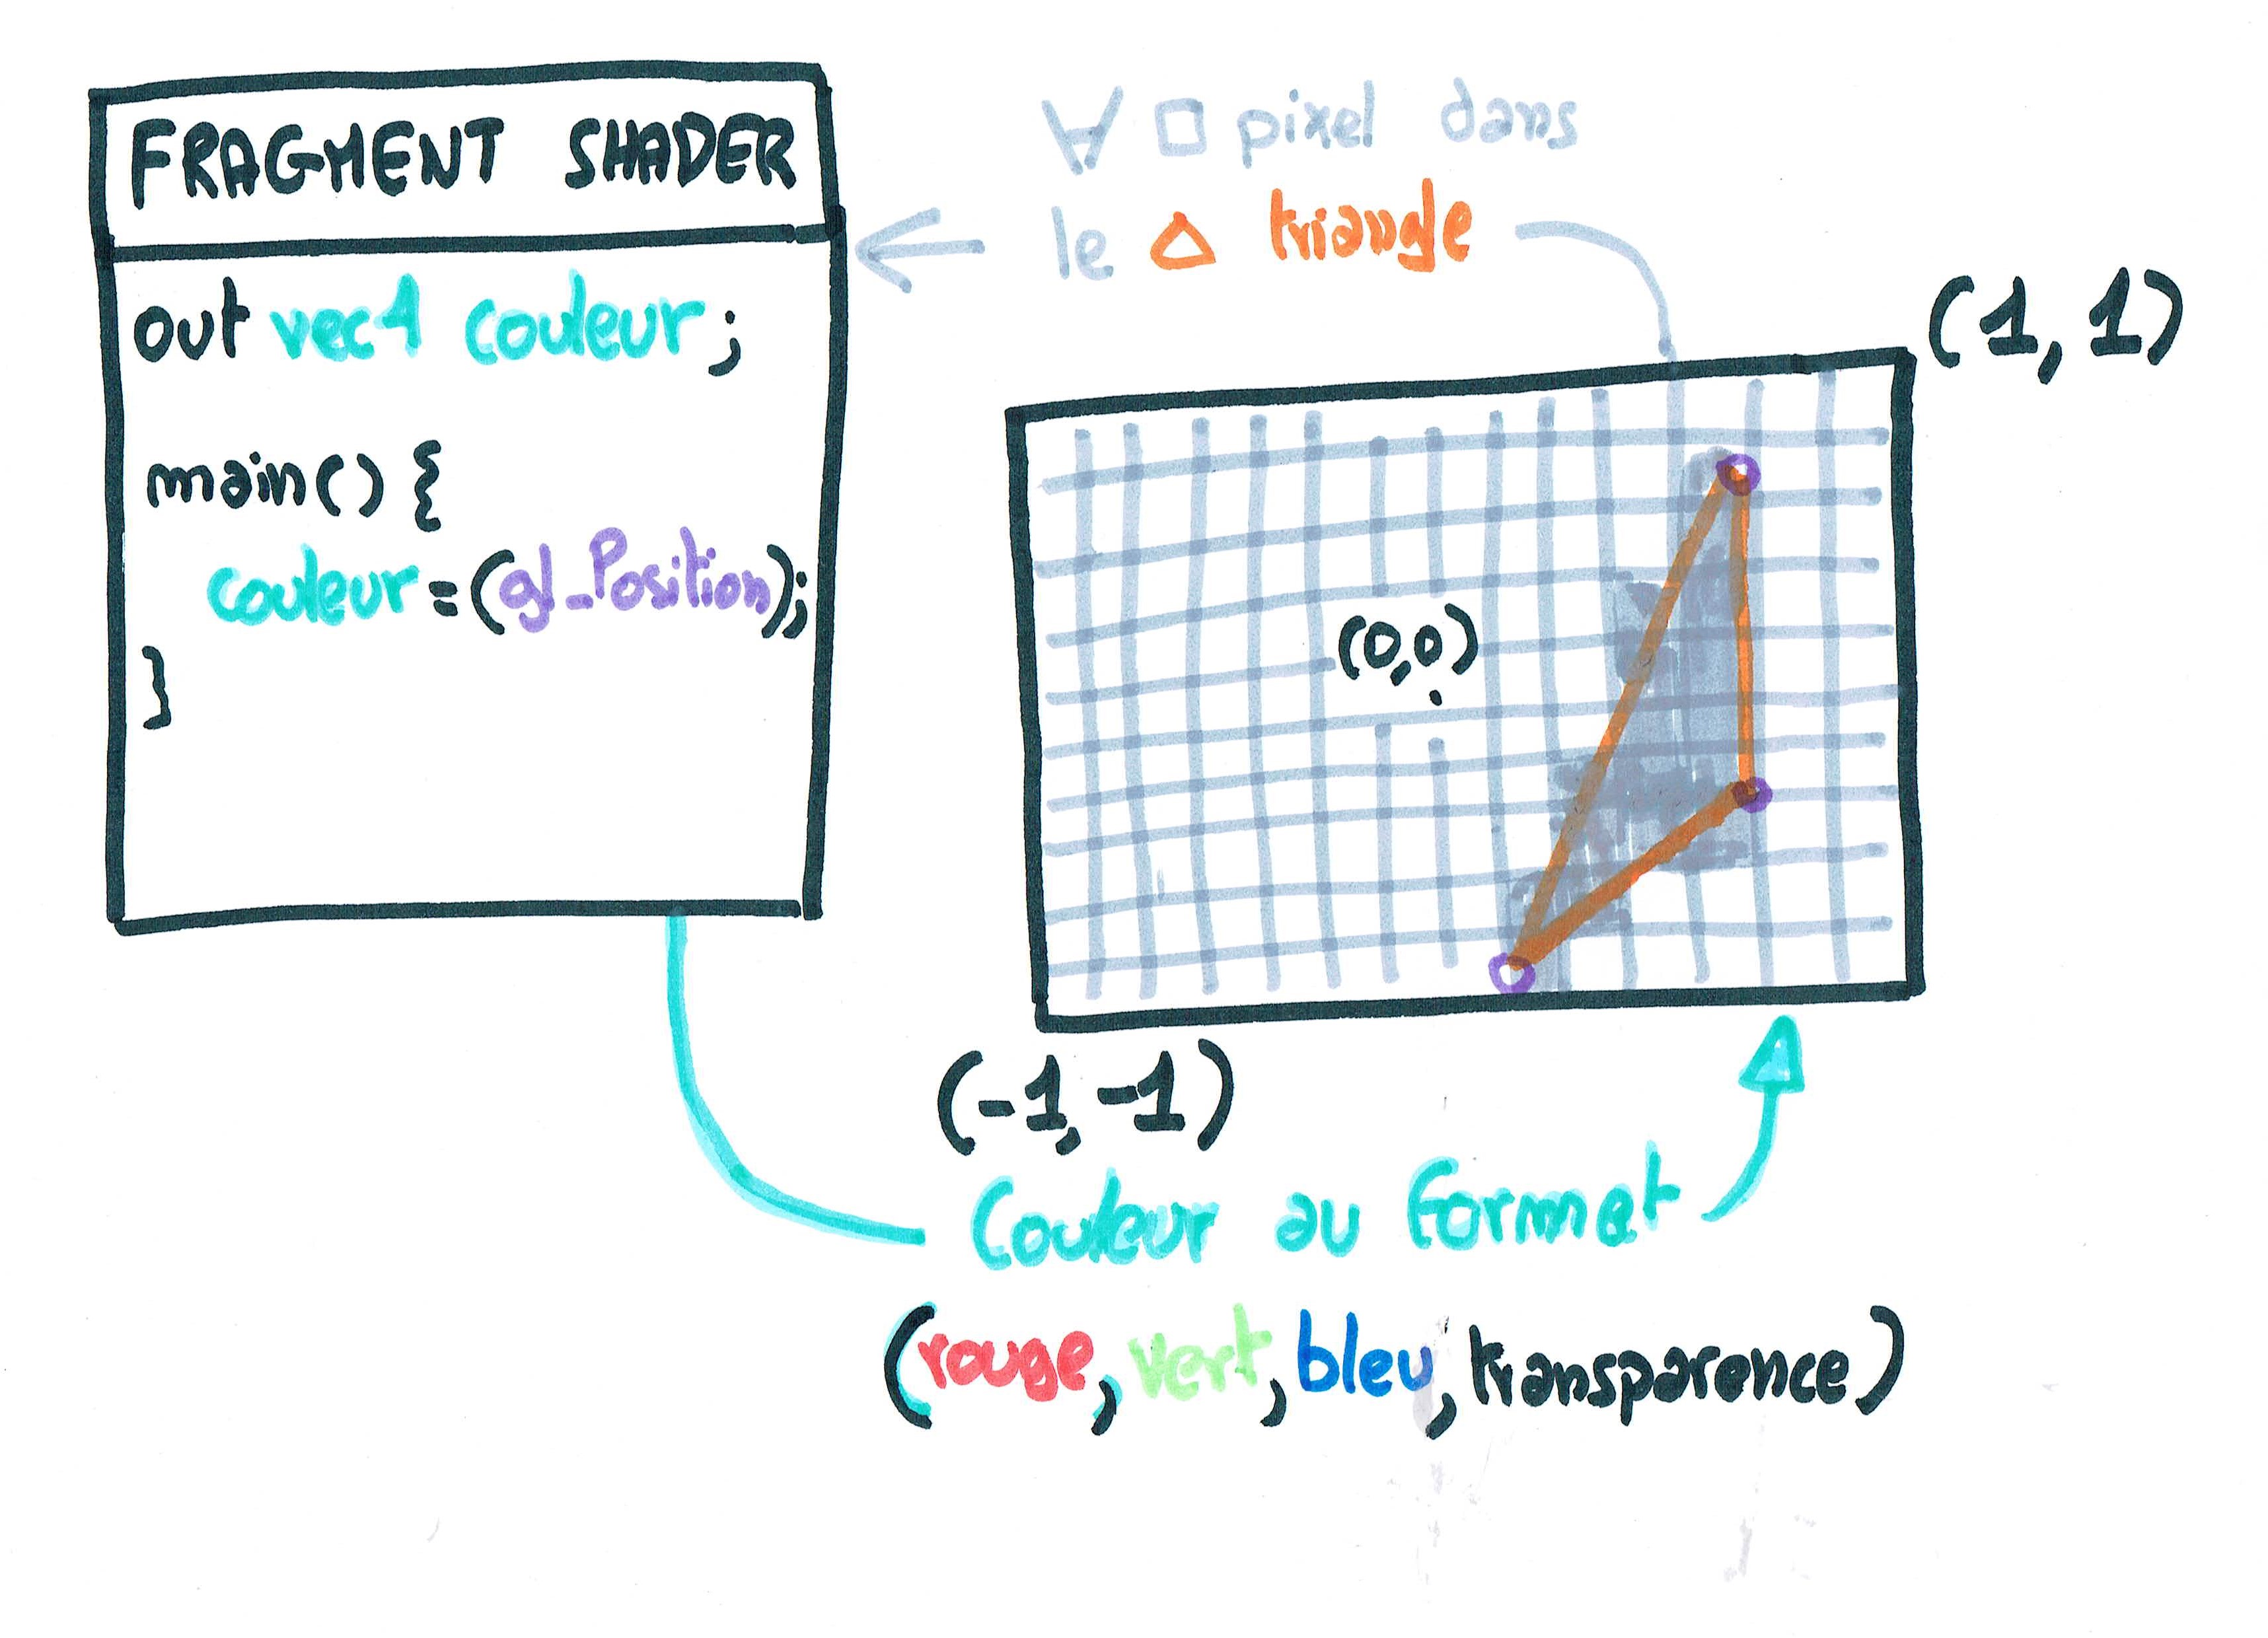 FRAGMENT SHADER
out vec4 couleur;
main() {
couleur=(gl_Position);
}
∀ □ pixel dans
le △ triangle
(1, 1)
(0,0)
(-1,-1)
Couleur au format
(rouge, vert, bleu, transparence)